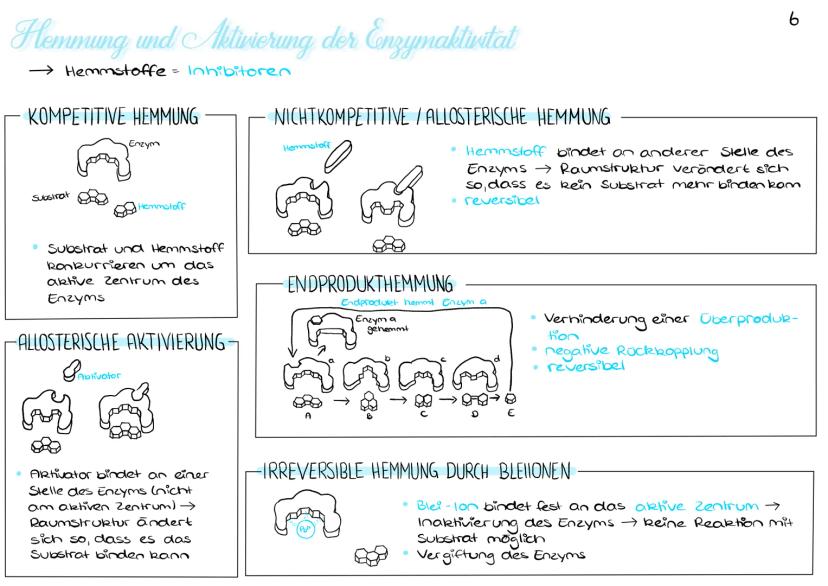 6
Hemmung und Aktivierung der Enzymaktivität
→ Hemmstoffe = Inhibitoren
KOMPETITIVE HEMMUNG
Enzym
Substrat
Hemmstoff
• Substrat und Hemmstoff
konkurrieren um das
aktive Zentrum des
Enzyms
NICHTKOMPETITIVE / ALLOSTERISCHE HEMMUNG
Hemmstoff
• Hemmstoff bindet an anderer Stelle des
Enzyms → Raumstruktur verändert sich
so, dass es kein Substrat mehr binden kann
• reversibel
ENDPRODUKTHEMMUNG
Endprodukt hemmt Enzym a
Enzym a
gehemmt
a b c d
A → B → C → D → E
• Verhinderung einer Überproduk-
tion
• negative Rückkopplung
• reversibel
ALLOSTERISCHE AKTIVIERUNG
Aktivator
• Aktivator bindet an einer
Stelle des Enzyms (nicht
am aktiven Zentrum) →
Raumstruktur ändert
sich so, dass es das
Substrat binden kann
IRREVERSIBLE HEMMUNG DURCH BLEIIONEN
• Blei-Ion bindet fest an das aktive Zentrum →
Inaktivierung des Enzyms → keine Reaktion mit
Substrat möglich
• Vergiftung des Enzyms